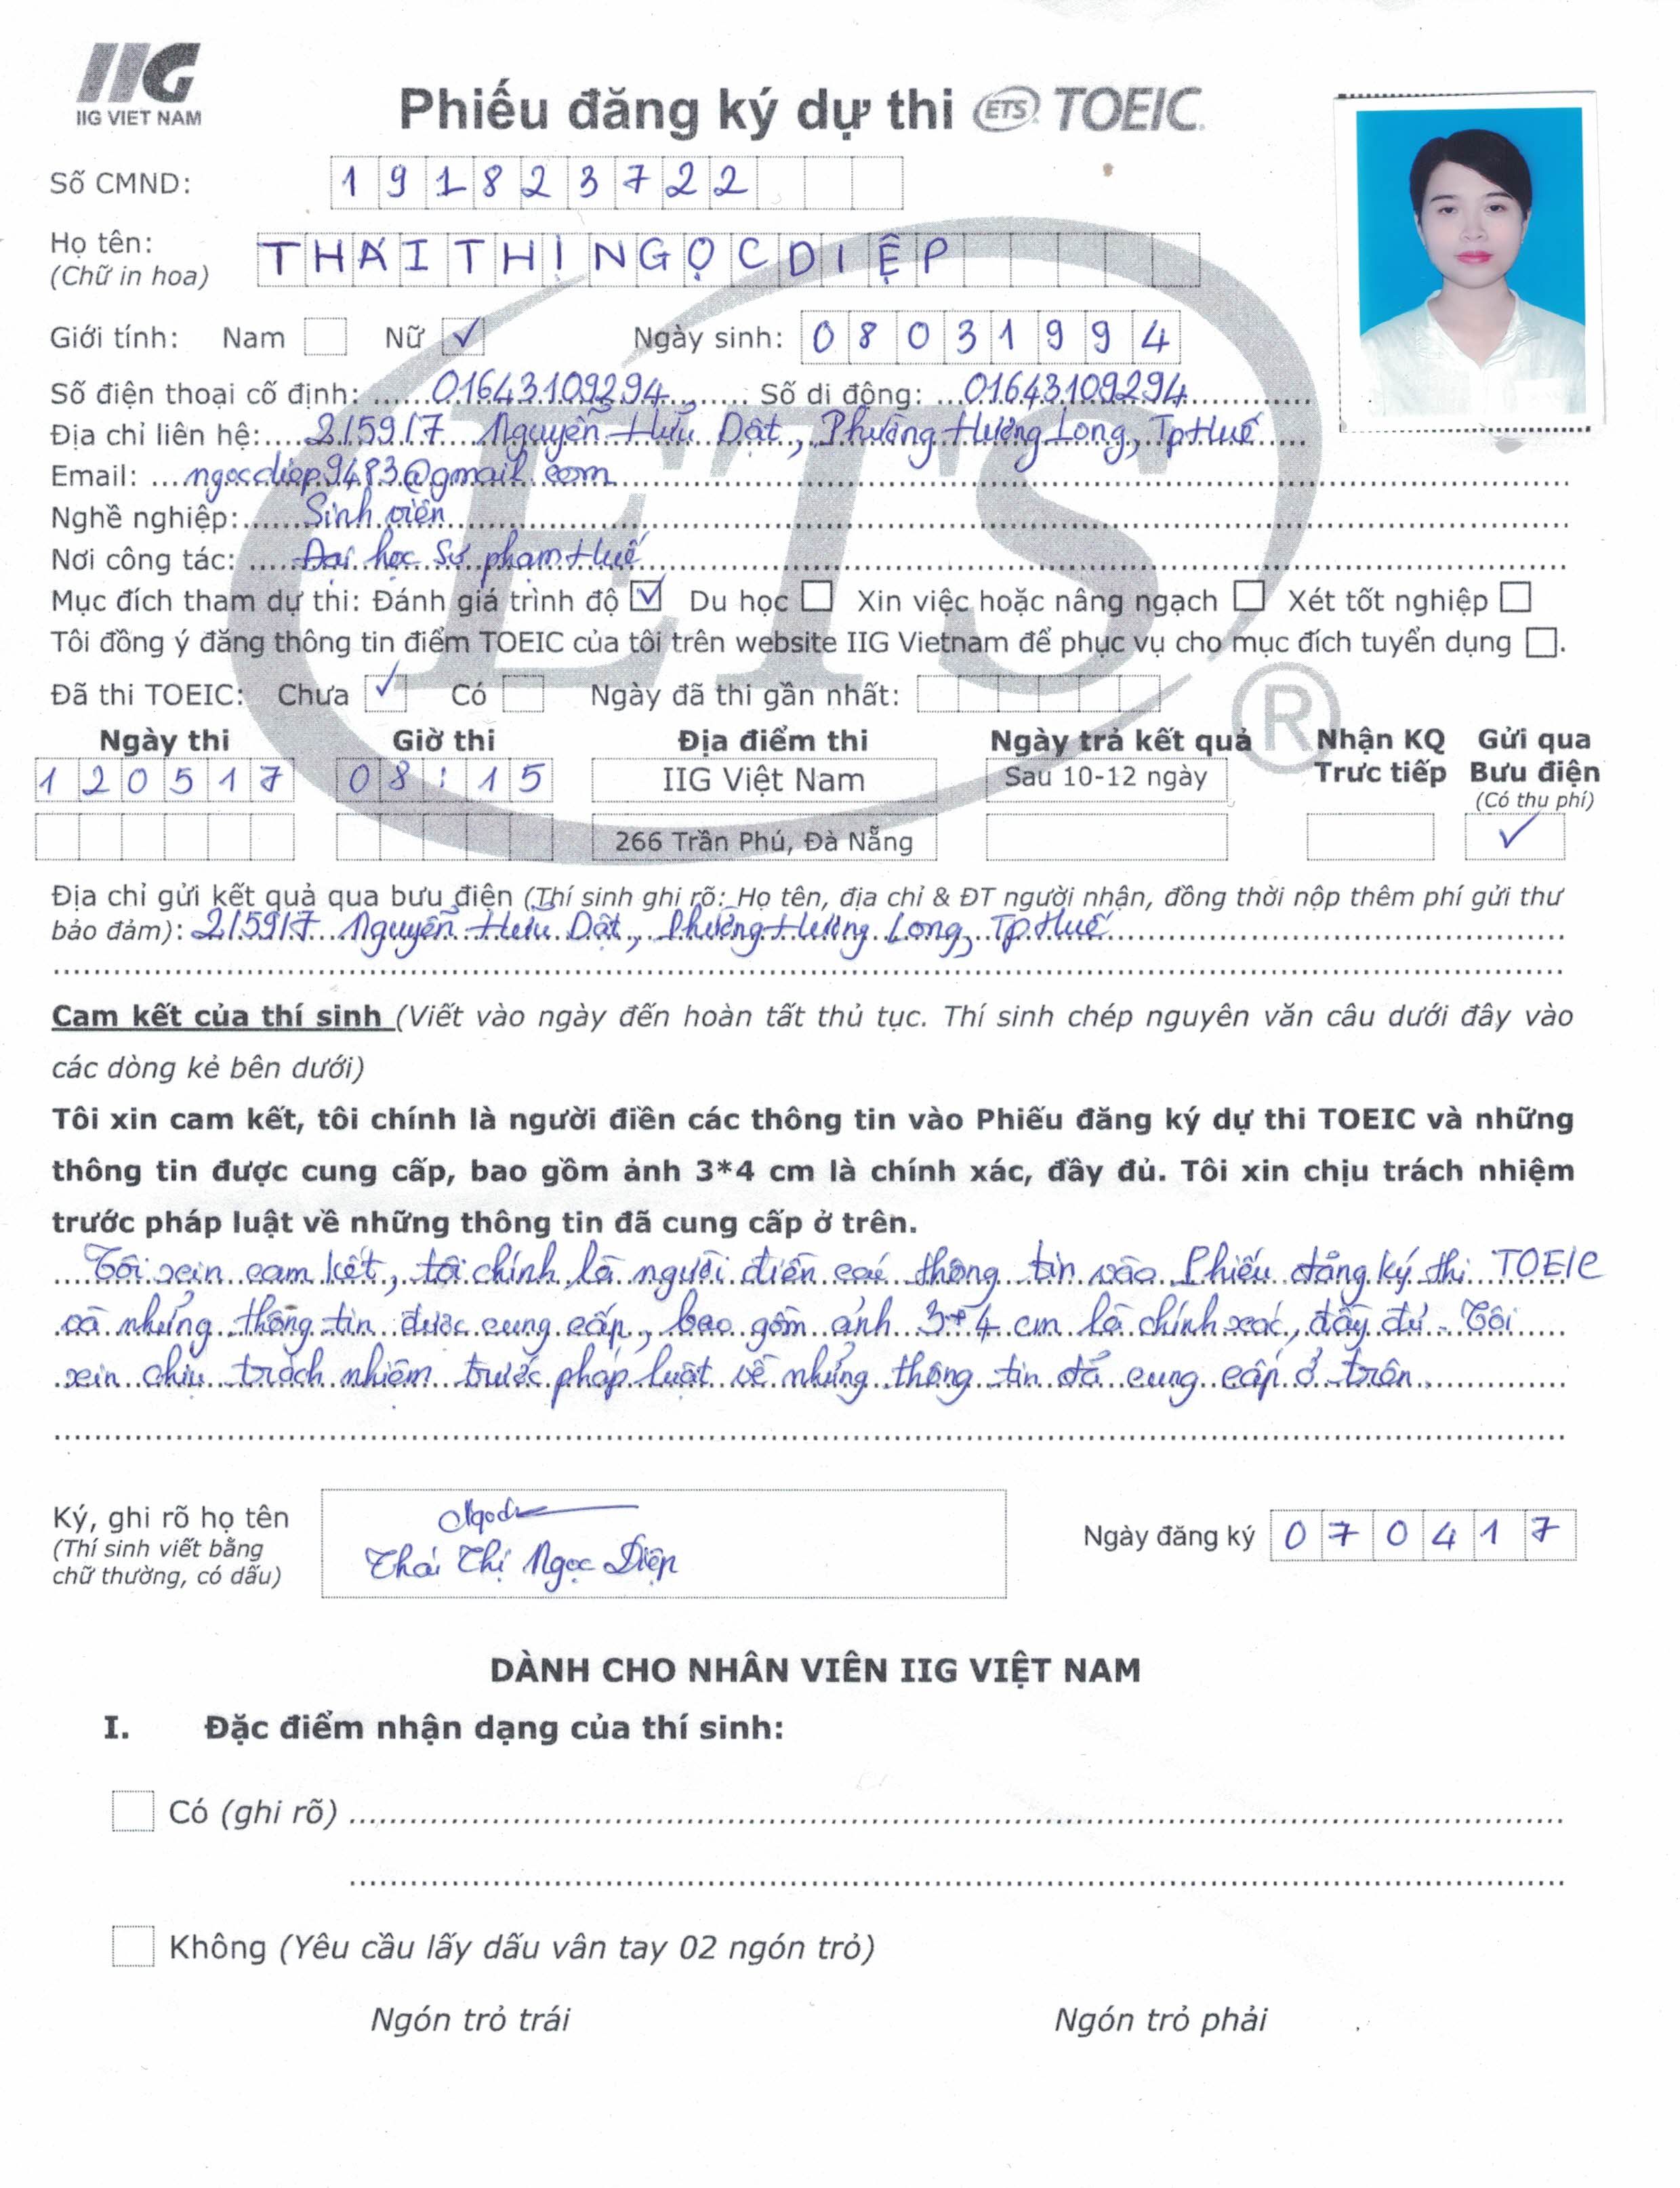 IIG
IIG VIET NAM
Phiếu đăng ký dự thi ETS TOEIC
Số CMND: 191823722
Họ tên: THÁI THỊ NGỌC DIỆP
(Chữ in hoa)
Giới tính: Nam Nữ ✓ Ngày sinh: 08031994
Số điện thoại cố định: 01643109294 Số di động: 01643109294
Địa chỉ liên hệ: 2/59/7 Nguyễn Hữu Dật, Phường Hương Long, Tp Huế
Email: ngocdiep9483@gmail.com
Nghề nghiệp: Sinh viên
Nơi công tác: Đại học Sư phạm Huế
Mục đích tham dự thi: Đánh giá trình độ ☑ Du học ☐ Xin việc hoặc nâng ngạch ☐ Xét tốt nghiệp ☐
Tôi đồng ý đăng thông tin điểm TOEIC của tôi trên website IIG Vietnam để phục vụ cho mục đích tuyển dụng ☐.
Đã thi TOEIC: Chưa ✓ Có Ngày đã thi gần nhất:
Ngày thi Giờ thi Địa điểm thi Ngày trả kết quả Nhận KQ Trực tiếp Gửi qua Bưu điện
(Có thu phí)
120517 08:15 IIG Việt Nam Sau 10-12 ngày
266 Trần Phú, Đà Nẵng ✓
Địa chỉ gửi kết quả qua bưu điện (Thí sinh ghi rõ: Họ tên, địa chỉ & ĐT người nhận, đồng thời nộp thêm phí gửi thư
bảo đảm): 2/59/7 Nguyễn Hữu Dật, Phường Hương Long, Tp Huế
Cam kết của thí sinh (Viết vào ngày đến hoàn tất thủ tục. Thí sinh chép nguyên văn câu dưới đây vào
các dòng kẻ bên dưới)
Tôi xin cam kết, tôi chính là người điền các thông tin vào Phiếu đăng ký dự thi TOEIC và những
thông tin được cung cấp, bao gồm ảnh 3*4 cm là chính xác, đầy đủ. Tôi xin chịu trách nhiệm
trước pháp luật về những thông tin đã cung cấp ở trên.
Tôi xin cam kết, tôi chính là người điền các thông tin vào Phiếu đăng ký thi TOEIC
và những thông tin được cung cấp, bao gồm ảnh 3*4 cm là chính xác, đầy đủ. Tôi
xin chịu trách nhiệm trước pháp luật về những thông tin đã cung cấp ở trên.
Ký, ghi rõ họ tên
(Thí sinh viết bằng
chữ thường, có dấu)
Thái Thị Ngọc Diệp
Ngày đăng ký 070417
DÀNH CHO NHÂN VIÊN IIG VIỆT NAM
I. Đặc điểm nhận dạng của thí sinh:
Có (ghi rõ)
Không (Yêu cầu lấy dấu vân tay 02 ngón trỏ)
Ngón trỏ trái Ngón trỏ phải
ETS ®